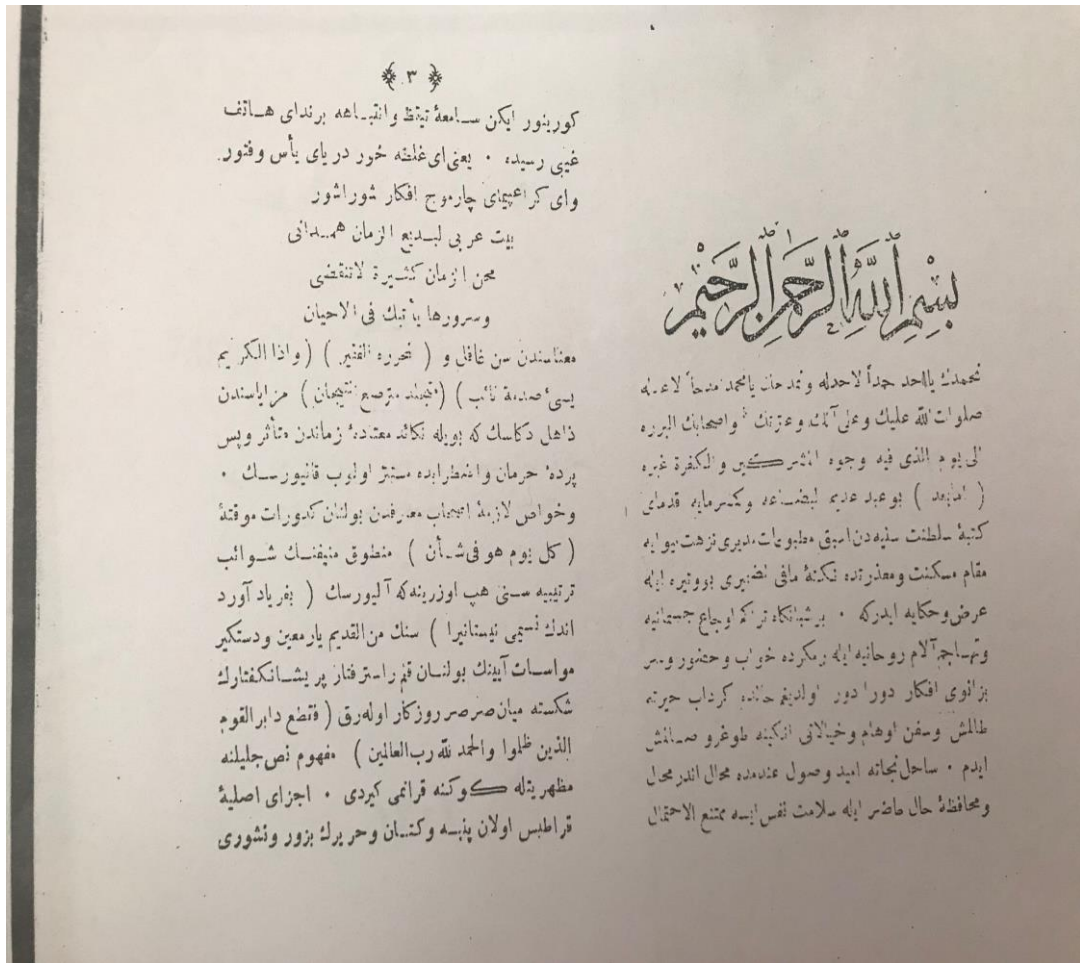 بِسْمِ اللّٰهِ الرَّحْمٰنِ الرَّحِيْمِ
نحمدك يااحد حمداً لاحدله و يامحمد مدحاً لاعدله
صلوات الله عليك وعلى آلك وعترتك واصحابك البرره
الى يوم الذى فيه وجوه المشركين والكفرة غبره
( امابعد ) بوعبد عديم لبضاعه وكمسرمايه قدماى
كتبۀ سلطنت سنيه دن اسبق مطبوعات مديرى نزهت بوايه
مقام مسكنت ومعذرتده نكتۀ مافى الضميرى بووتيره ايله
عرض وحكايه ايدركه · برشبانكاه تراكم اوجاع جسمانيه
وتهاجم آلام روحانيه ايله رمكرده خواب وحضور وسر
بزانوى افكار دورا دور اولديغم حالده كرداب حيرته
طالمش وسفن اوهام وخيالاتى انكينه طوغرو صالمش
ايدم · ساحل نجاته اميد وصول عندمده محال اندر محال
ومحافظۀ حال حاضر ايله سلامت نفس ايسه ممتنع الاحتمال
﴿ ٣ ﴾
كورينور ايكن سامعۀ تيقظ وانتباهه برنداى هاتف
غيبى رسيده · يعنى اى غلطه خور درياى يأس وفتور
واى چارموج افكار شوراشور
بيت عربى لبديع الزمان همدانى
محن الزمان كثيرة لاتنقضى
وسرورها يأتيك فى الاحيان
معناسندن سن غافل و ( نحرره الفقير ) ( واذا الكريم
) ( ) مزاياسندن
ذاهل دكلسك كه بويله نكائد معتدۀ زماندن متأثر وپس
پردۀ حرمان واضطرابده مستتر اولوب قانيورسك ·
وخواص لازمۀ اصحاب معارفدن بولنان كدورات موقتۀ
( كل يوم هو فى شأن ) منطوق منيفنك شوائب
ترتيبيه سنى هپ اوزرينه كه آليورسك ( بفرياد آورد
اندك نسيمى نيستانيرا ) سنك من القديم يار معين ودستكير
مواسات آيينك بولنان قلم راسترفتار پريشانكفتارك
شكسته ميان صرصر روزكار اوله رق ( فقطع دابر القوم
الذين ظلموا والحمد لله رب العالمين ) مفهوم نص جليلنه
مظهريتله كوكنه قرانمى كيردى · اجزاى اصليۀ
قراطيس اولان پنبه وكتان وحريرك بزور ونشورى